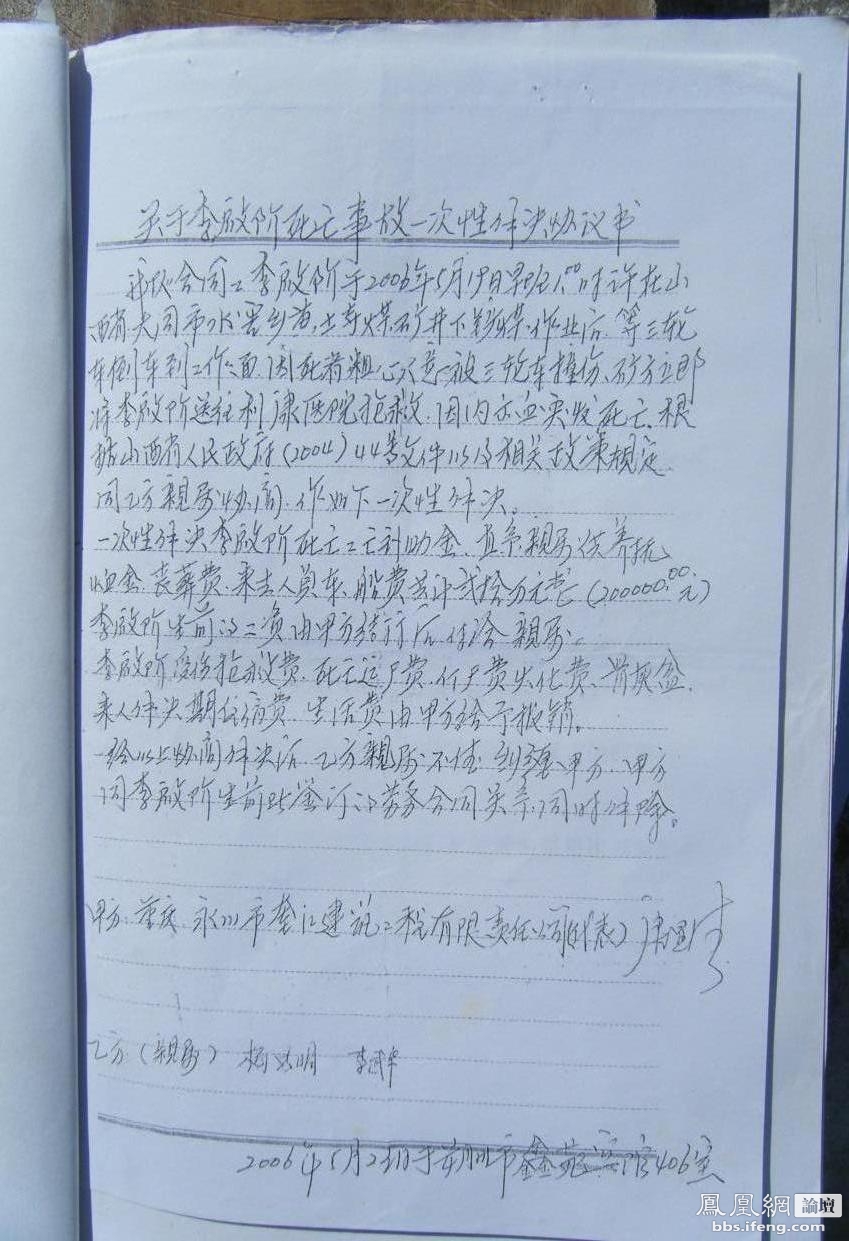 关于李啟阶死亡事故一次性解决协议书
我队合同工李啟阶于2006年5月19日早班1:00时许在山
西省大同市水窑乡黄土寺煤矿井下 作业后,等三轮
车倒车到工作面,因死者粗心大意被三轮车撞伤,矿方立即
将李啟阶送往利康医院抢救,因内出血突发死亡,根
据山西省人民政府(2004)44号文件以及相关政策规定,
同乙方亲属协商,作如下一次性解决。
一次性解决李啟阶死亡工亡补助金、直系亲属供养抚
恤金、丧葬费、来去人员车、船费共计贰拾万元 (200000.00元)
李啟阶生前的工资由甲方结订后付给亲属。
李啟阶受伤抢救费、死亡运尸费、 尸费火化费、骨灰盆、
来人解决期住宿费、生活费由甲方给予报销。
一经以上协商解决后,乙方亲属不得纠缠甲方,甲方
同李啟阶生前所签订的劳务合同关系,同时解除。
甲方:重庆永川市 江建筑工程有限责任公司(代表)
乙方(親属) 明 李
2006年5月2 日于朔州市鑫苑宾馆406室
鳳凰網 論壇
bbs.ifeng.com